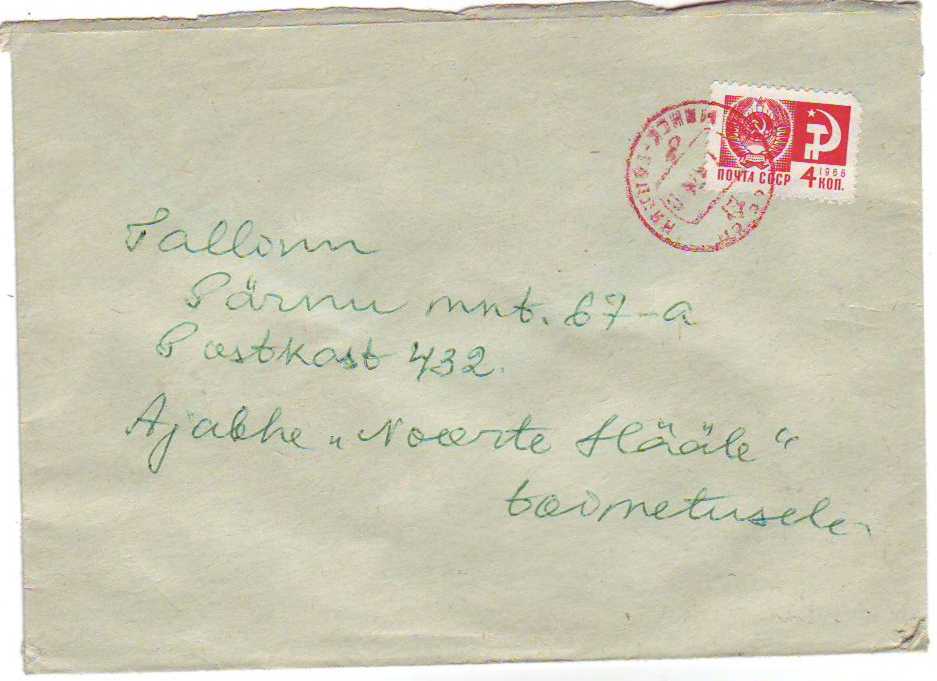 ПОЧТА СССР
4 1966
КОП.
МИНСК
Tallinn
Pärnu mnt. 67-a
Postkast 432.
Ajalehe „Noorte Hääle“
toimetusele